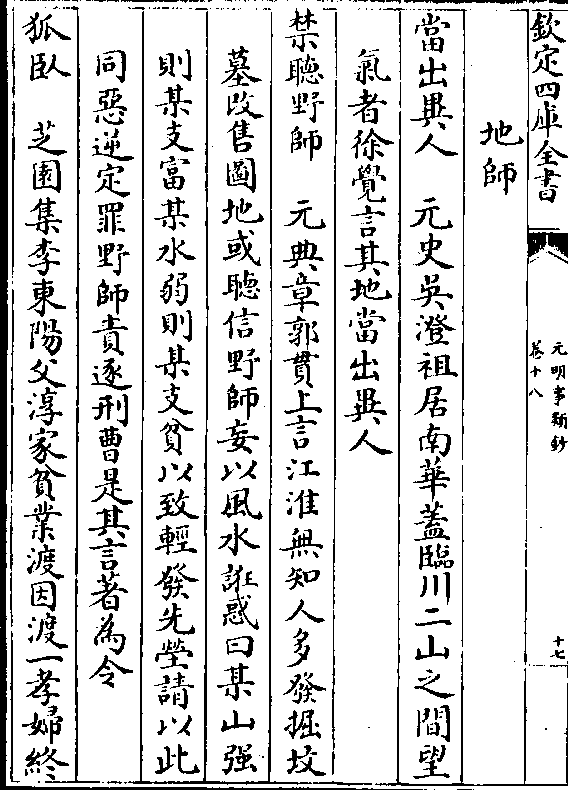 欽定四庫全書
元明事類鈔
卷十八
十七
地師
當出異人　元史吳澄祖居南華蓋臨川二山之間望
氣者徐覺言其地當出異人
禁聽野師　元典章郭貫上言江淮無知人多發掘墳
墓改售圖地或聽信野師妄以風水誑惑曰某山强
則某支富某水弱則某支貧以致輕發先塋請以此
同惡逆定罪野師責逐刑曹是其言著為令
狐臥　芝園集李東陽父淳家貧業渡因渡一孝婦終